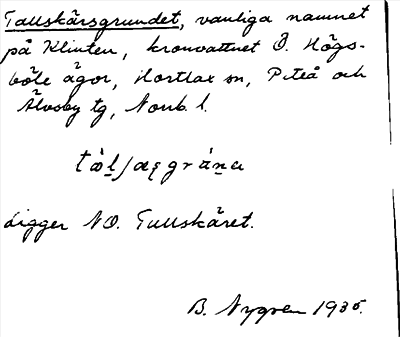 Tallskärsgrundet, vanliga namnet
på Klinten, kronvattnet Ö. Högs-
böle ägor, Hortlax sn, Piteå och
Älvsby tg, Norrb. l.
Ligger NO. Tallskäret.
B. Nygren 1935.